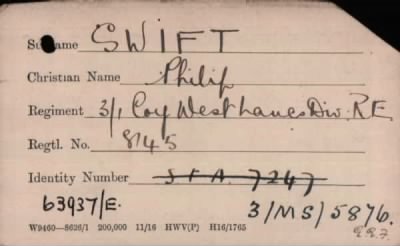 Surname SWIFT
Christian Name Philip
Regiment 3/1 Coy West Lancs Div. R.E
Regtl. No. 8145
Identity Number S.F.A. 7247
63937/E. 3/MS/5876.
W9460—8626/1 200,000 11/16 HWV(P) H16/1765